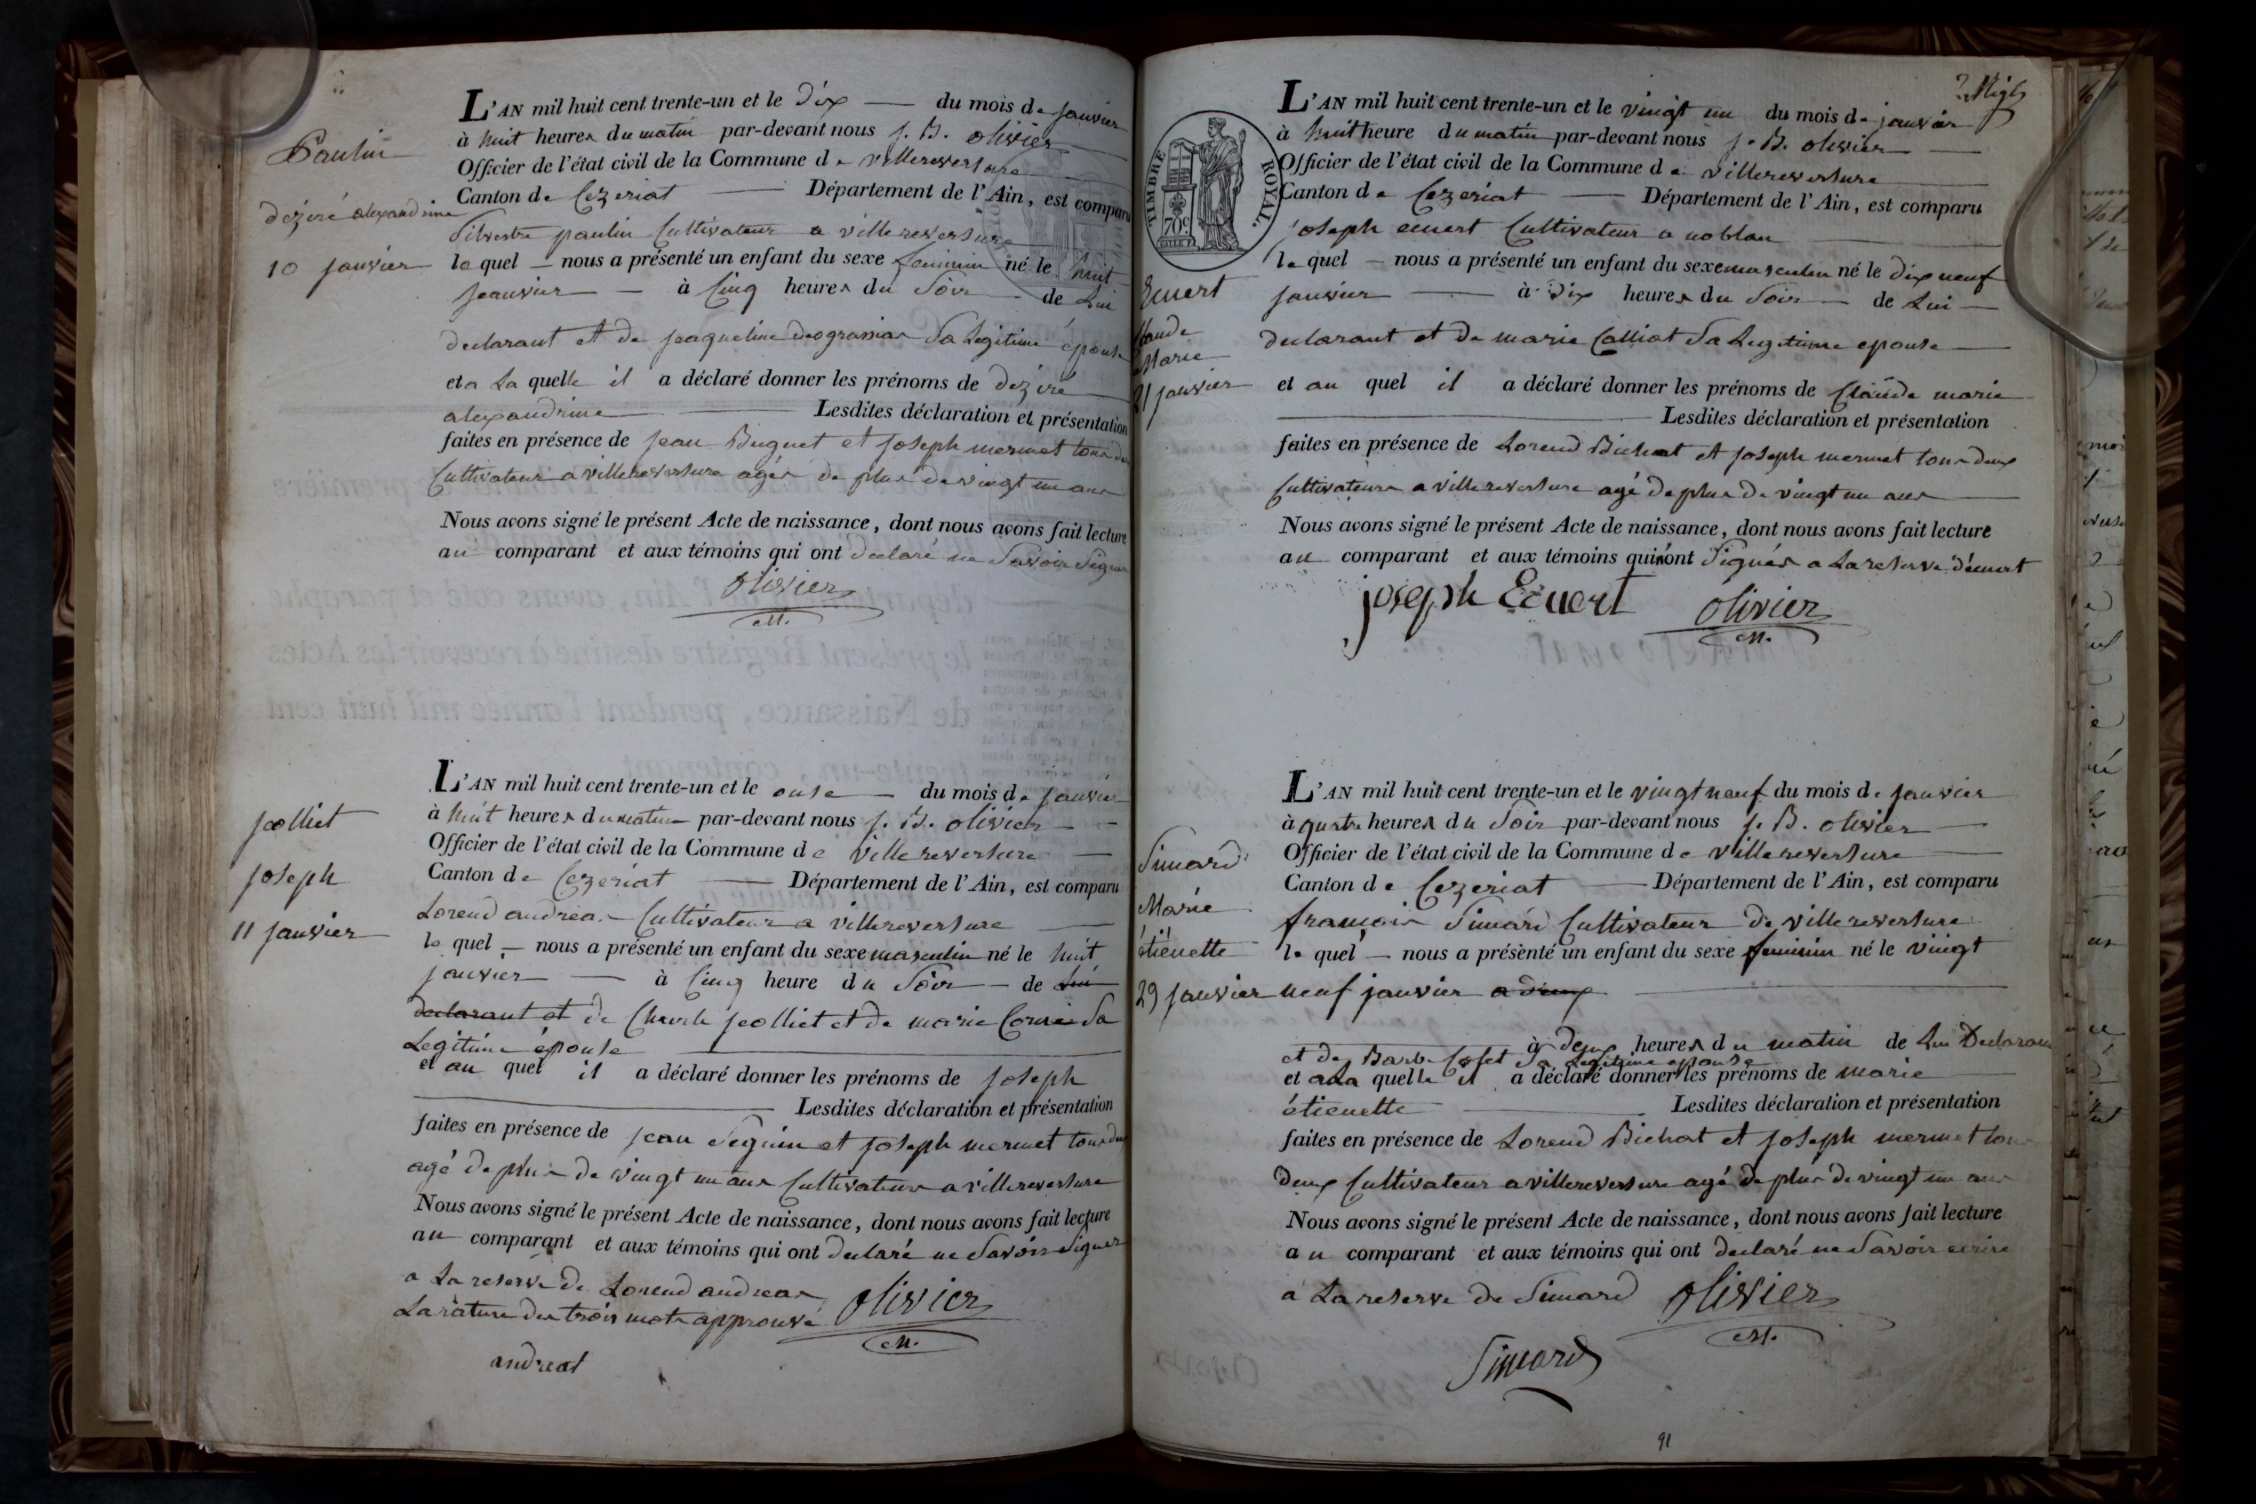 Paulin
dezeré alexandrine
10 janvier
L'AN mil huit cent trente-un et le dix du mois de janvier
à huit heures du matin par-devant nous J. B. olivier
Officier de l'état civil de la Commune de villereversure
Canton de Cezeriat Département de l'Ain, est comparu
Silvestre paulin Cultivateur a villereversure
le quel nous a présenté un enfant du sexe feminin né le huit
jeanvier à Cinq heures du Soir de Lui
declarant et de jaqueline deograssias Sa Legitime épouse
et a La quelle il a déclaré donner les prénoms de dezéré
alexandrine Lesdites déclaration et présentation
faites en présence de jean Buguet et joseph mermet tous deux
Cultivateur a villereversure agés de plus de vingt un ans
Nous avons signé le présent Acte de naissance, dont nous avons fait lecture
au comparant et aux témoins qui ont declaré ne Savoir Signer
olivier
m.
jolliet
joseph
11 janvier
L'AN mil huit cent trente-un et le onse du mois de janvier
à huit heures du matin par-devant nous J. B. olivier
Officier de l'état civil de la Commune de villereversure
Canton de Cezeriat Département de l'Ain, est comparu
Lorend andreas Cultivateur a villereversure
le quel nous a présenté un enfant du sexe masculin né le huit
janvier à Cinq heure du Soir de Lui
declarant et de Charle jolliet et de marie Sa
Legitime épouse
et au quel il a déclaré donner les prénoms de joseph
Lesdites déclaration et présentation
faites en présence de jean Seguin et joseph mermet tous deux
agé de plus de vingt un ans Cultivateurs a villereversure
Nous avons signé le présent Acte de naissance, dont nous avons fait lecture
au comparant et aux témoins qui ont declaré ne Savoir Signer
a La reserve de Lorend andreas
La rature des trois mots approuvé olivier
m.
andreas
TIMBRE ROYAL.
70c
Ecuert
Claude
Marie
21 janvier
L'AN mil huit cent trente-un et le vingt un du mois de janvier
à huit heure du matin par-devant nous J. B. olivier
Officier de l'état civil de la Commune de villereversure
Canton de Cezeriat Département de l'Ain, est comparu
joseph ecuert Cultivateur a noblan
le quel nous a présenté un enfant du sexe masculin né le dix neuf
janvier à dix heures du Soir de Lui
declarant et de marie Calliat Sa Legitime epouse
et au quel il a déclaré donner les prénoms de Claude marie
Lesdites déclaration et présentation
faites en présence de Lorend Bichat et joseph mermet tous deux
Cultivateurs a villereversure agé de plus de vingt un ans
Nous avons signé le présent Acte de naissance, dont nous avons fait lecture
au comparant et aux témoins qui n'ont Signés a La reserve d'ecuert
joseph Ecuert olivier
m.
Simard
Marie
étienette
29 janvier
L'AN mil huit cent trente-un et le vingt neuf du mois de janvier
à quatre heures du Soir par-devant nous J. B. olivier
Officier de l'état civil de la Commune de villereversure
Canton de Cezeriat Département de l'Ain, est comparu
françois Simard Cultivateur de villereversure
le quel nous a présenté un enfant du sexe feminin né le vingt
neuf janvier a deux
à deux heures du matin de Lui Declarant
et de Barbe Sa Legitime epouse
et a La quelle il a déclaré donner les prénoms de marie
étienette Lesdites déclaration et présentation
faites en présence de Lorend Bichat et joseph mermet tous
deux Cultivateur a villereversure agé de plus de vingt un ans
Nous avons signé le présent Acte de naissance, dont nous avons fait lecture
au comparant et aux témoins qui ont declaré ne Savoir ecrire
a La reserve de Simard olivier
m.
Simard
91